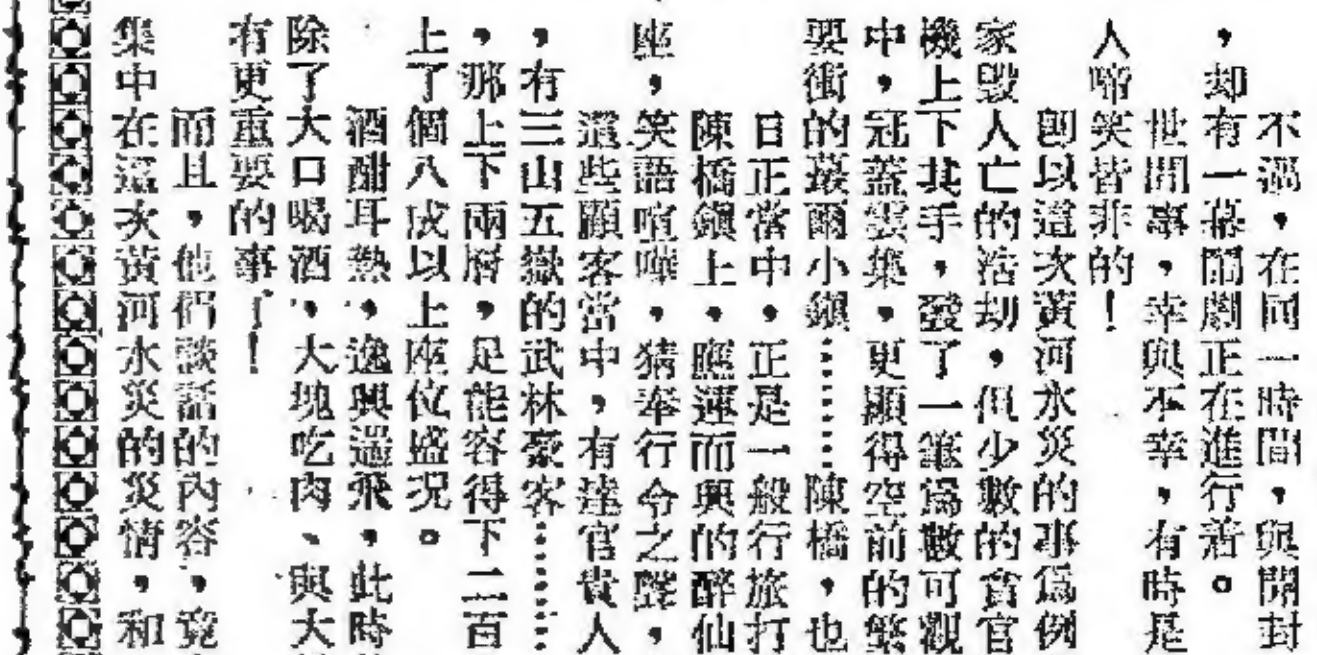 不過，在同一時間，與開封
，却有一幕鬧劇正在進行着。
世間事，幸與不幸，有時是
人啼笑皆非的！
卽以這次黃河水災的事爲例
家毀人亡的浩劫，但少數的貪官
機上下其手，發了一筆爲數可觀
中，冠蓋雲集，更顯得空前的繁
要衝的蕞爾小鎮……陳橋，也
日正當中，正是一般行旅打
陳橋鎮上，應運而興的醉仙
座，笑語喧嘩，猜拳行令之聲，
這些顧客當中，有達官貴人
，有三山五嶽的武林豪客……
，那上下兩層，足能容得下二百
上了個八成以上座位盛況。
酒酣耳熱，逸興遄飛，此時
除了大口喝酒，大塊吃肉、與大
有更重要的事！
而且，他們談話的內容，竟
集中在這次黃河水災的災情，和